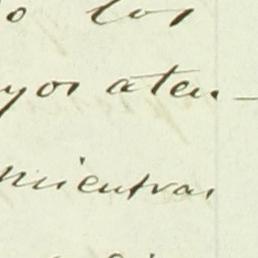 o los
yos aten-
mientras